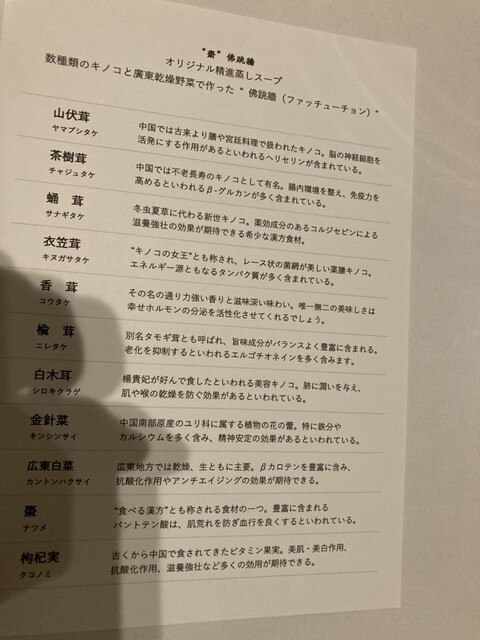 “齋” 佛跳牆
オリジナル精進蒸しスープ
数種類のキノコと廣東乾燥野菜で作った “ 佛跳牆（ファッチューチョン）”
山伏茸
ヤマブシタケ
中国では古来より膳や宮廷料理で扱われたキノコ。脳の神経細胞を
活発にする作用があるといわれるヘリセリンが含まれている。
茶樹茸
チャジュタケ
中国では不老長寿のキノコとして有名。腸内環境を整え、免疫力を
高めるといわれるβ-グルカンが多く含まれている。
蛹 茸
サナギタケ
冬虫夏草に代わる新世キノコ。薬効成分のあるコルジセピンによる
滋養強壮の効果が期待できる希少な漢方食材。
衣笠茸
キヌガサタケ
“キノコの女王”とも称され、レース状の菌網が美しい薬膳キノコ。
エネルギー源ともなるタンパク質が多く含まれている。
香 茸
コウタケ
その名の通り力強い香りと滋味深い味わい。唯一無二の美味しさは
幸せホルモンの分泌を活性化させてくれるでしょう。
楡 茸
ニレタケ
別名タモギ茸とも呼ばれ、旨味成分がバランスよく豊富に含まれる。
老化を抑制するといわれるエルゴチオネインを多く含みます。
白木耳
シロキクラゲ
楊貴妃が好んで食したといわれる美容キノコ。肺に潤いを与え、
肌や喉の乾燥を防ぐ効果があるといわれている。
金針菜
キンシンサイ
中国南部原産のユリ科に属する植物の花の蕾。特に鉄分や
カルシウムを多く含み、精神安定の効果があるといわれている。
広東白菜
カントンハクサイ
広東地方では乾燥、生ともに主要。βカロテンを豊富に含み、
抗酸化作用やアンチエイジングの効果が期待できる。
棗
ナツメ
“食べる漢方”とも称される食材の一つ。豊富に含まれる
パントテン酸は、肌荒れを防ぎ血行を良くするといわれている。
枸杞実
クコノミ
古くから中国で食されてきたビタミン果実。美肌・美白作用、
抗酸化作用、滋養強壮など多くの効用が期待できる。